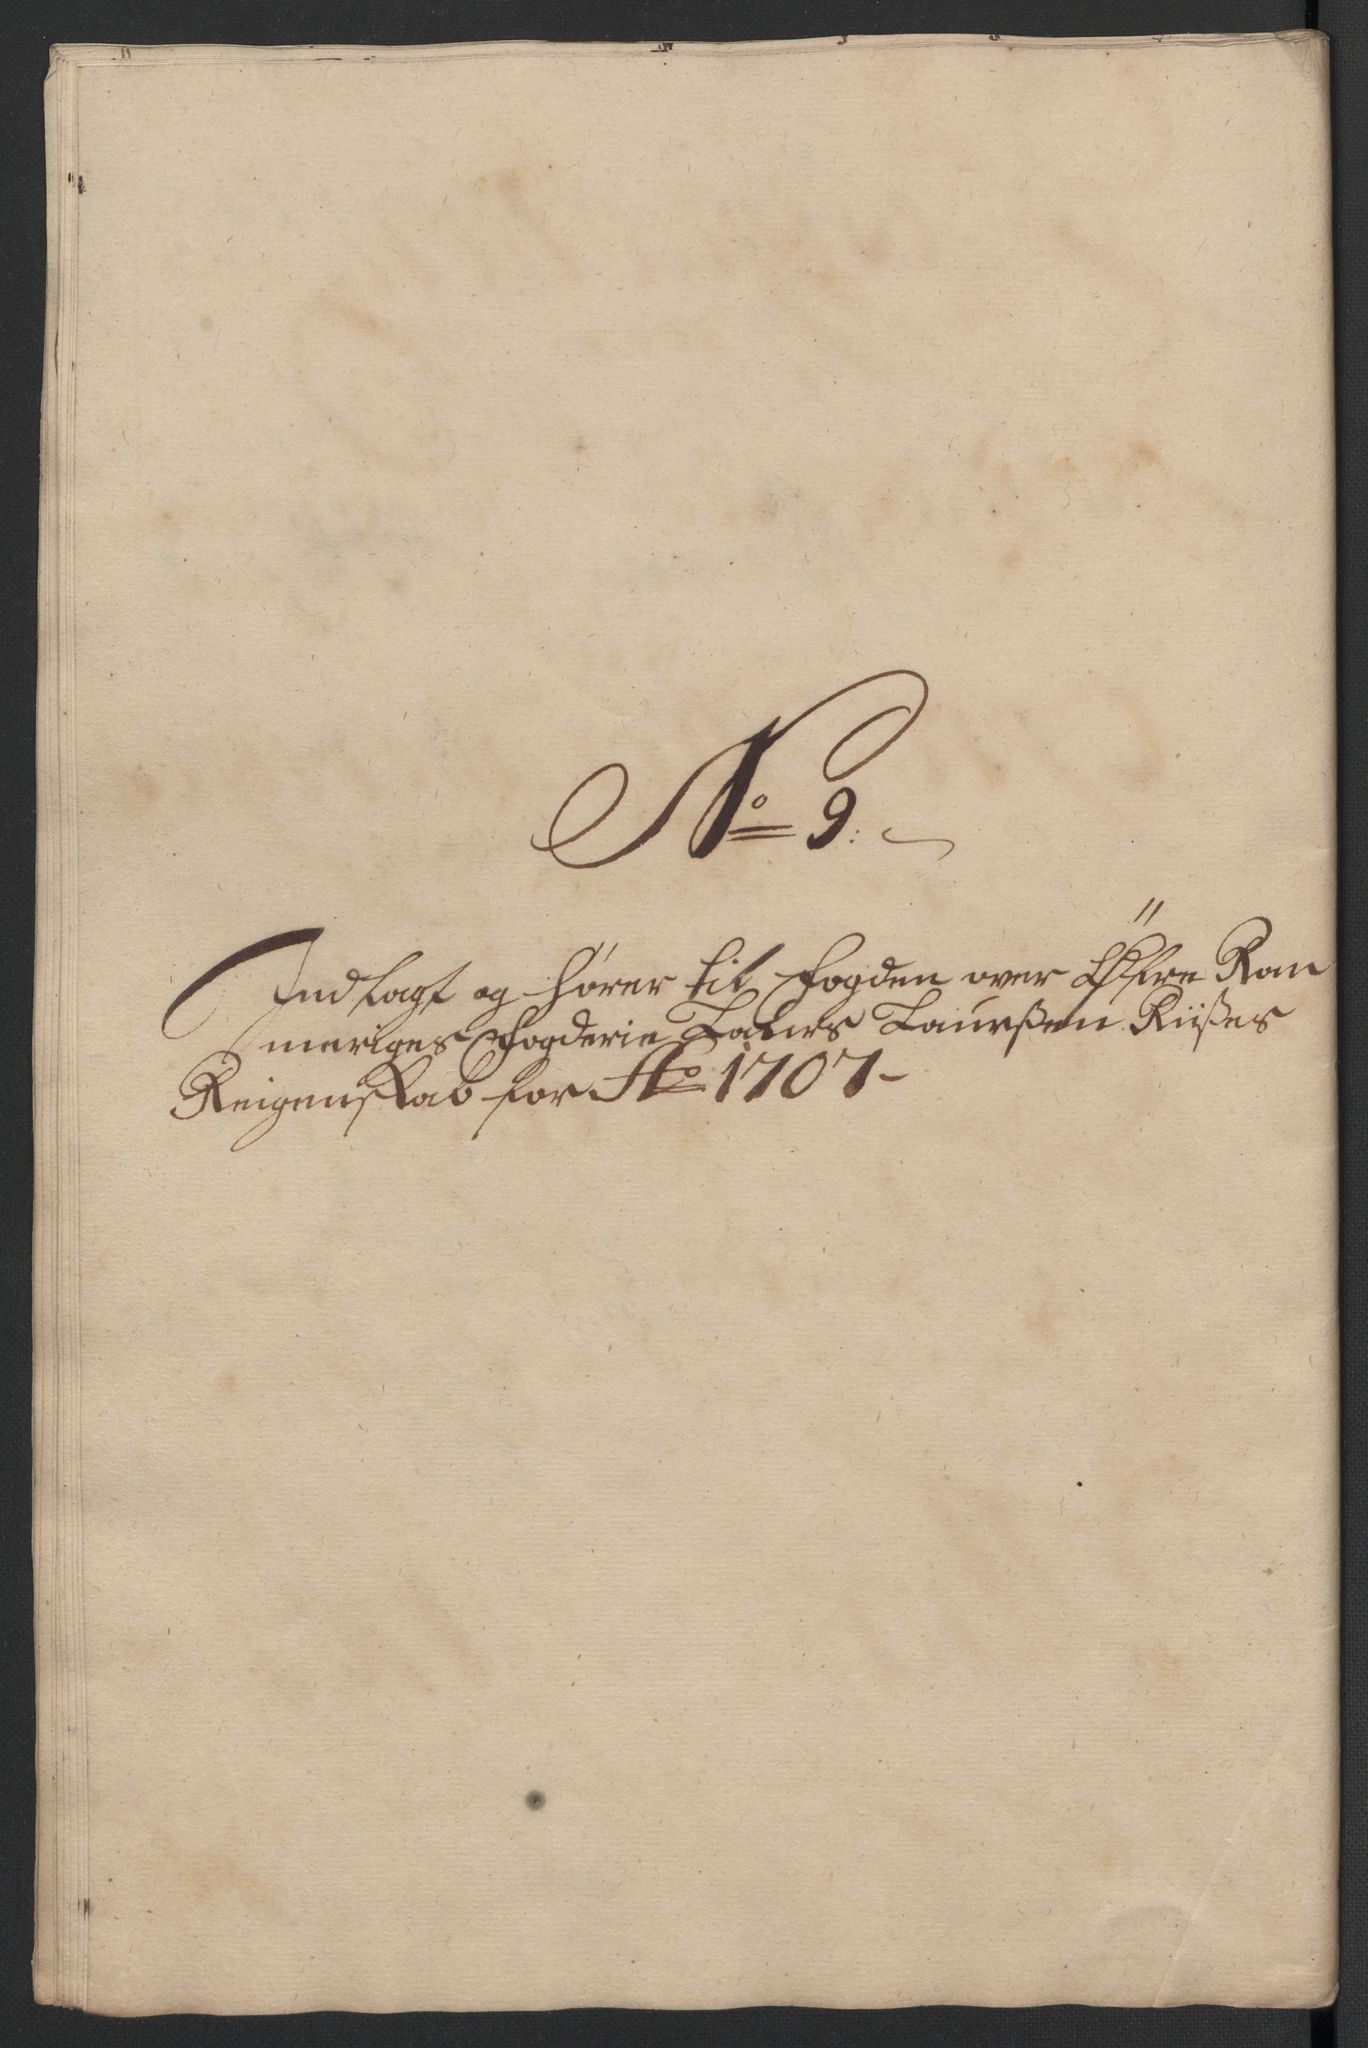 No 9.
Indlagt og hører til fogden over Øfre Rom
meriges fogderie Lauers Laurssen Riises
Reigenskab for Ao 1707